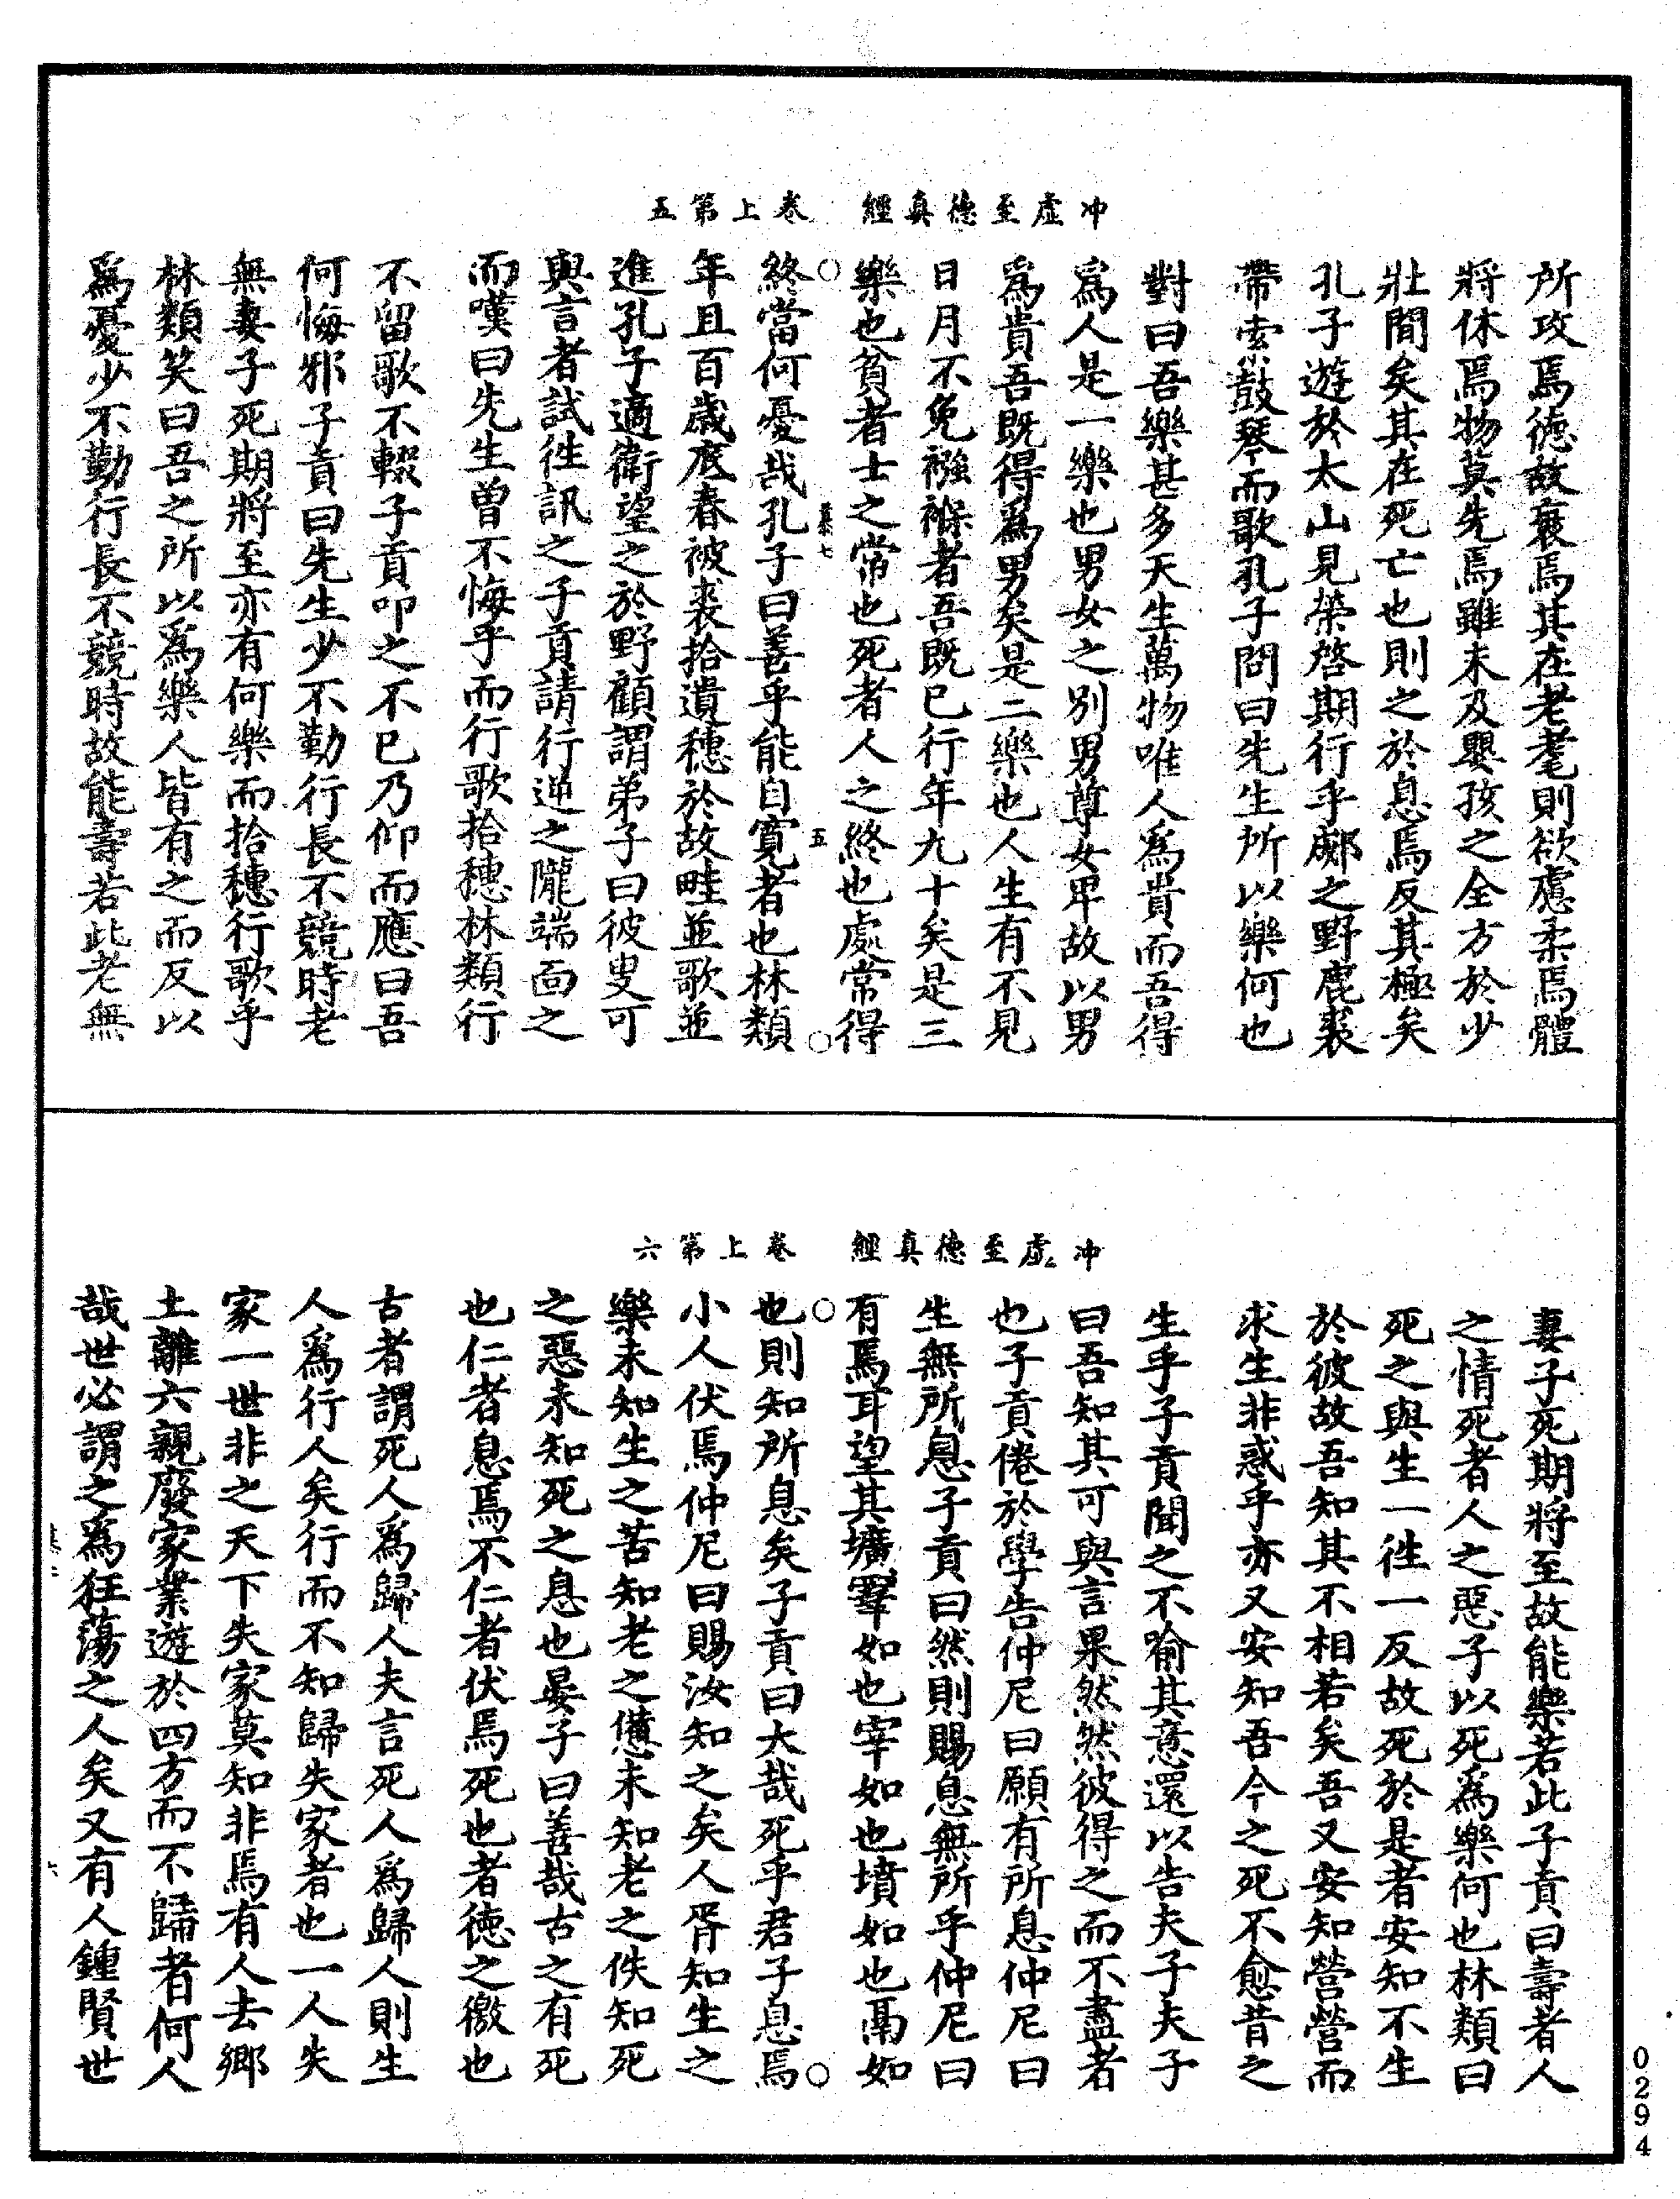 冲虛至德真經　卷上第五
所攻焉德故衰焉其在老耄則欲慮柔焉體
將休焉物莫先焉雖未及嬰孩之全方於少
壯間矣其在死亡也則之於息焉反其極矣
孔子遊於太山見榮啓期行乎郕之野鹿裘
帶索鼓琴而歌孔子問曰先生所以樂何也
對曰吾樂甚多天生萬物唯人爲貴而吾得
爲人是一樂也男女之別男尊女卑故以男
爲貴吾既得爲男矣是二樂也人生有不見
日月不免襁褓者吾既已行年九十矣是三
樂也貧者士之常也死者人之終也處常得
五
終當何憂哉孔子曰善乎能自寬者也林類
年且百歲底春被裘拾遺穗於故畦並歌並
進孔子適衛望之於野顧謂弟子曰彼叟可
與言者試往訊之子貢請行逆之隴端面之
而嘆曰先生曾不悔乎而行歌拾穗林類行
不留歌不輟子貢叩之不已乃仰而應曰吾
何悔邪子貢曰先生少不勤行長不競時老
無妻子死期將至亦有何樂而拾穗行歌乎
林類笑曰吾之所以爲樂人皆有之而反以
爲憂少不勤行長不競時故能壽若此老無
冲虛至德真經　卷上第六
妻子死期將至故能樂若此子貢曰壽者人
之情死者人之惡子以死爲樂何也林類曰
死之與生一往一反故死於是者安知不生
於彼故吾知其不相若矣吾又安知營營而
求生非惑乎亦又安知吾今之死不愈昔之
生乎子貢聞之不喻其意還以告夫子夫子
曰吾知其可與言果然然彼得之而不盡者
也子貢倦於學告仲尼曰願有所息仲尼曰
生無所息子貢曰然則賜息無所乎仲尼曰
有焉耳望其壙睪如也宰如也墳如也鬲如
也則知所息矣子貢曰大哉死乎君子息焉
小人伏焉仲尼曰賜汝知之矣人胥知生之
樂未知生之苦知老之憊未知老之佚知死
之惡未知死之息也晏子曰善哉古之有死
也仁者息焉不仁者伏焉死也者德之徼也
古者謂死人爲歸人夫言死人爲歸人則生
人爲行人矣行而不知歸失家者也一人失
家一世非之天下失家莫知非焉有人去鄉
土離六親廢家業遊於四方而不歸者何人
哉世必謂之爲狂蕩之人矣又有人鍾賢世
0294